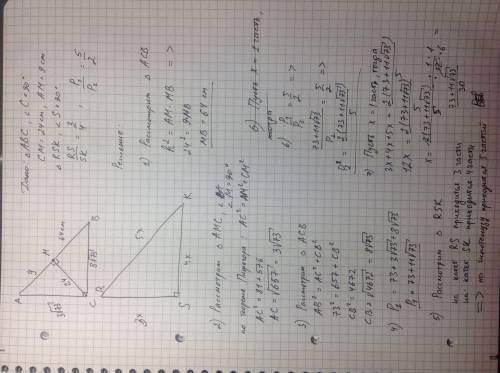 Дано: △ABC, ∠C = 90°
CM = 24 см, AM = 9 см
△ RSK ∠S = 90°
RS/SK = 3/4 P₁/P₂ = 5/2
Решение:
1) Рассмотрим △ ACB
h² = AM · MB =>
24² = 9MB
MB = 64 см
A
9
M
64 см
B
3√73
C
8√73
R
5x
K
3x
S
4x
2) Рассмотрим △ AMC, ∠M = 90°
по теореме Пифагора: AC² = AM² + CM²
AC² = 81 + 576
AC = √657 = 3√73
3) Рассмотрим △ ACB
AB² = AC² + CB²
73² = 657 + CB²
CB² = 4672
CB = √4672 = 8√73
4) P₁ = 73 + 3√73 + 8√73
P₁ = 73 + 11√73
5) Рассмотрим △ RSK
на катет RS приходится 3 части
на катет SK приходится 4 части
=> на гипотенузу приходится 5 частей
6) Пусть x = 1 часть,
тогда
6) P₁/P₂ = 5/2 =>
73+11√73/P₂ = 5/2 =>
P₂ = 2(73+11√73)/5
7) Пусть x = 1 часть, тогда
3x + 4x + 5x = 2(73+11√73)/5
12x = 2(73+11√73)/5
x = 2(73+11√73)/5 · 1/12 =
73+11√73/30